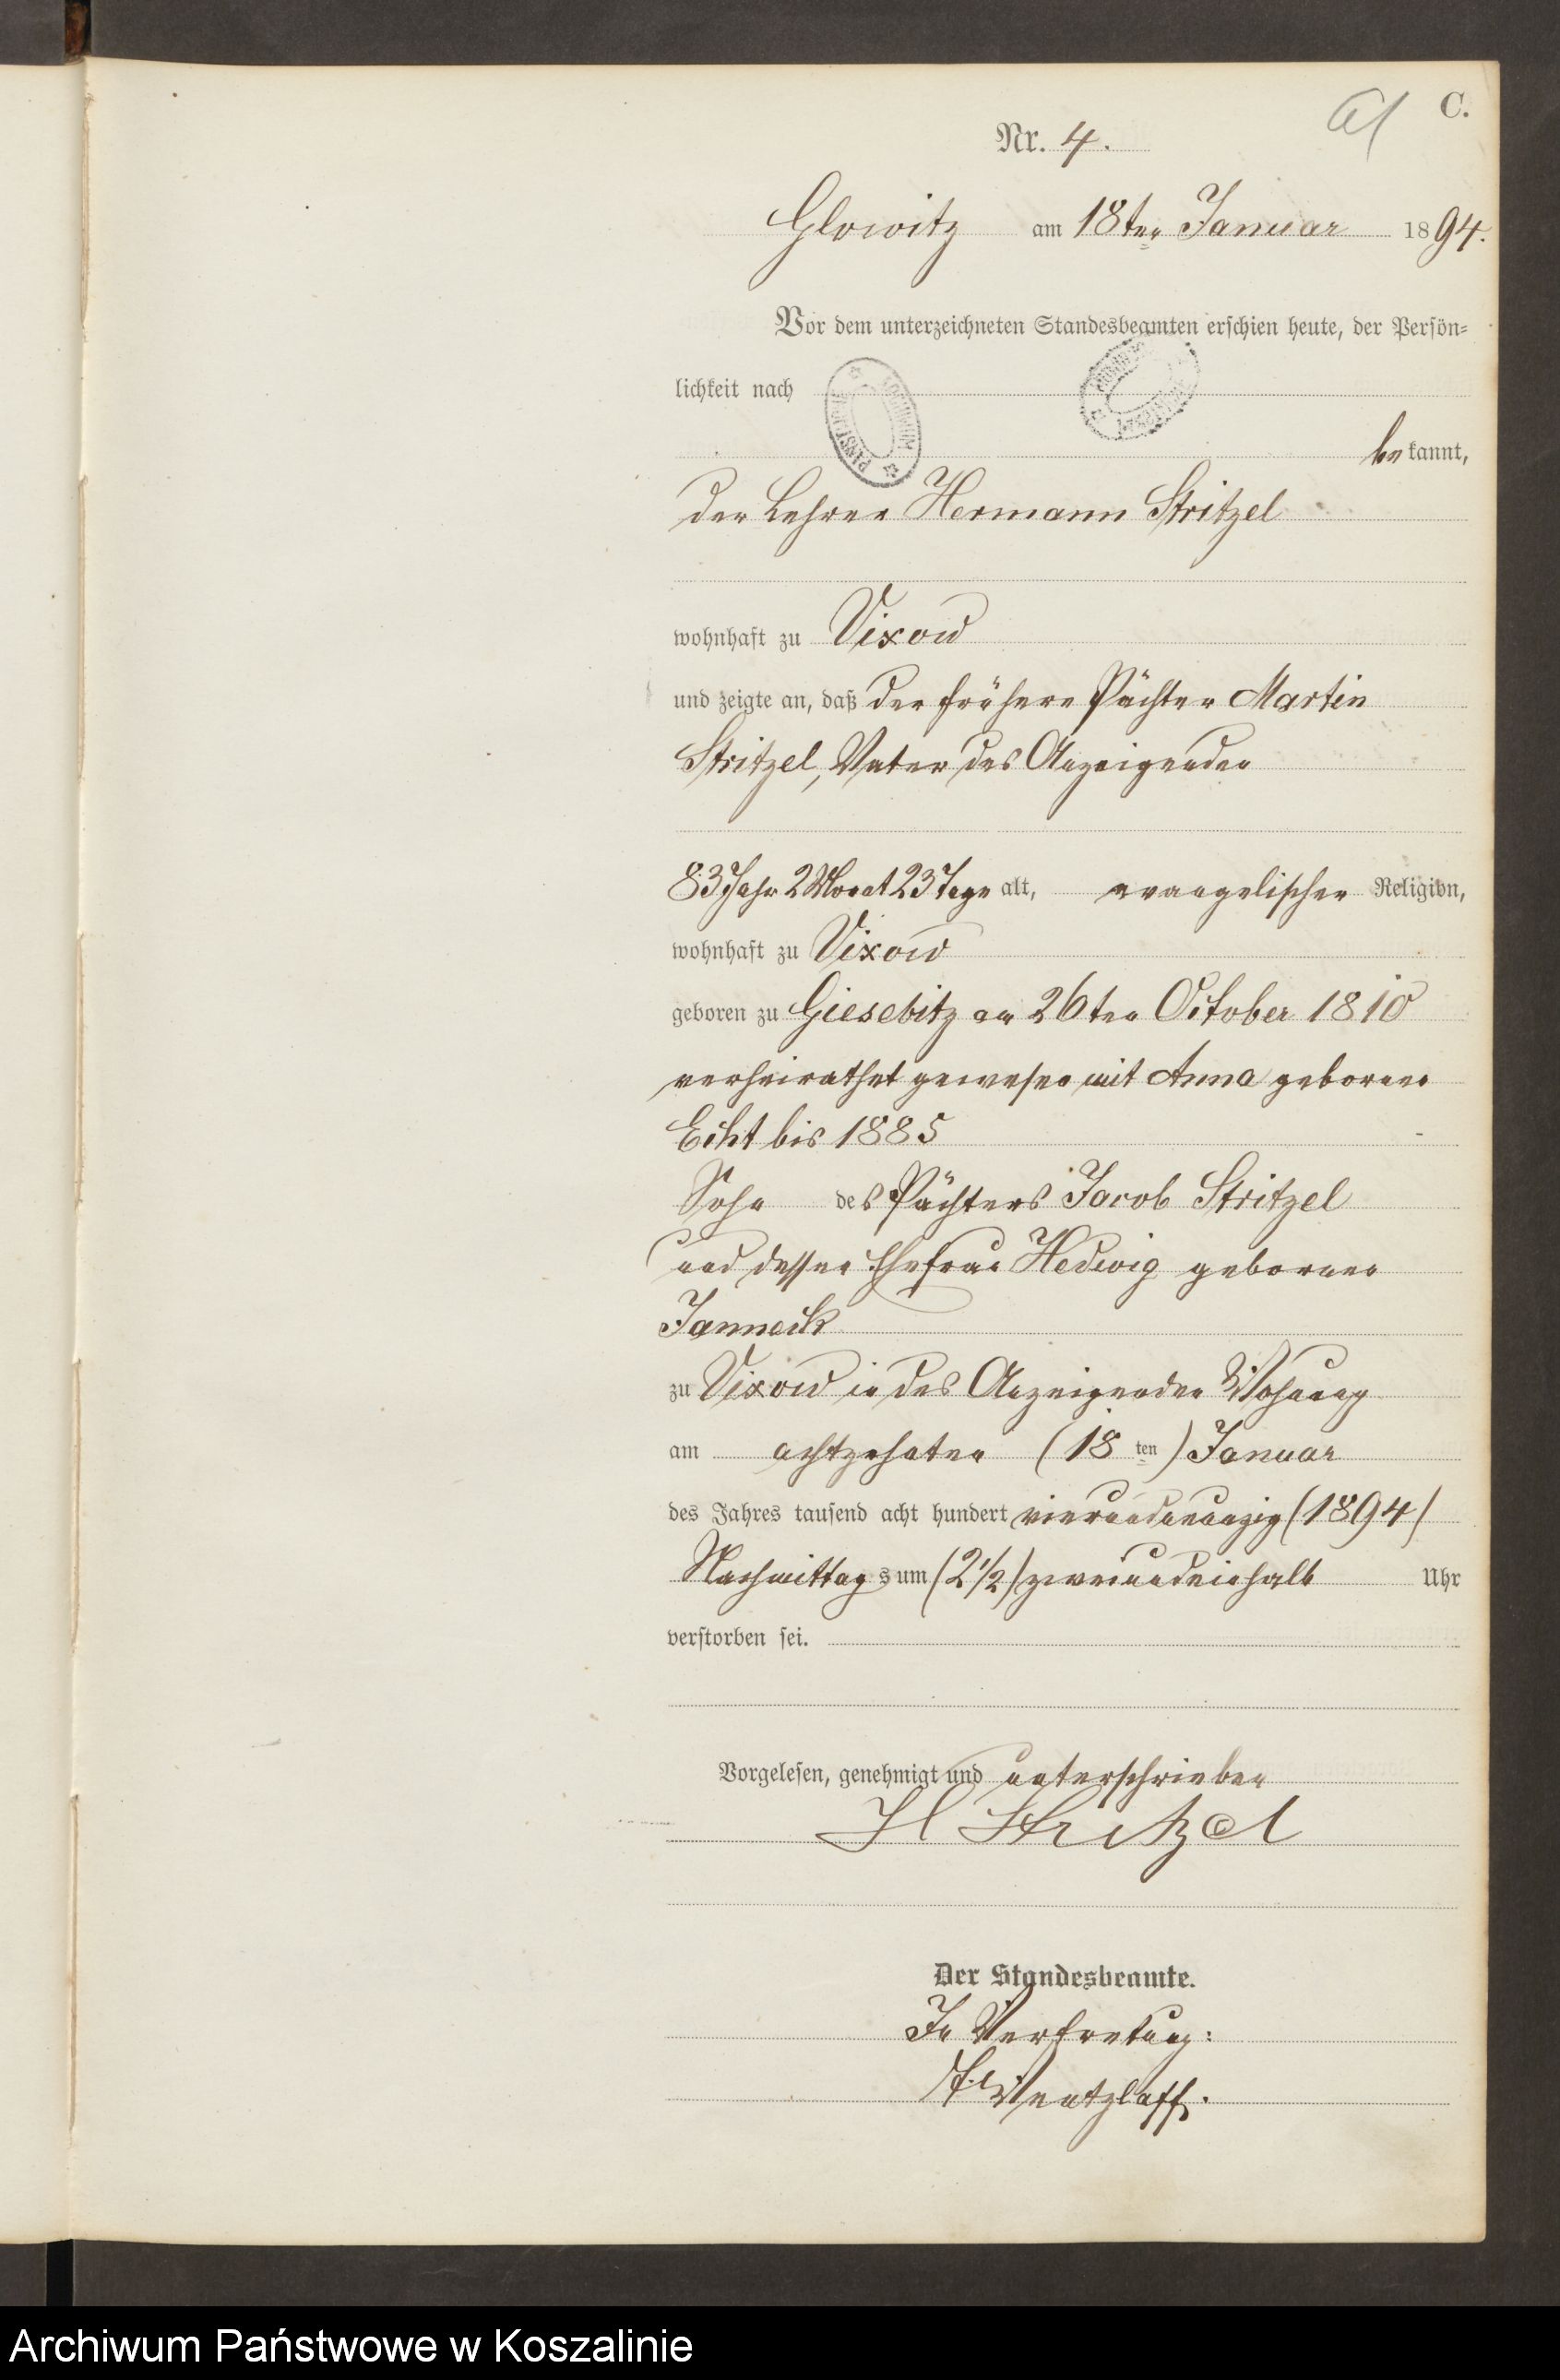 C.
Nr. 4.
Glowitz am 18ten Januar 1894.
Vor dem unterzeichneten Standesbeamten erschien heute, der Persön-
lichkeit nach
bekannt,
der Lehrer Hermann Stritzel
wohnhaft zu Vixow
und zeigte an, daß der frühere Pächter Martin
Stritzel, Vater des Anzeigenden
83 Jahr 2 Monat 23 Tage alt, evangelischer Religion,
wohnhaft zu Vixow
geboren zu Giesebitz am 26ten October 1810
verheirathet gewesen mit Anna geborenen
Echt bis 1885
Sohn des Pächters Jacob Stritzel
und dessen Ehefrau Hedwig geborenen
Janneck
zu Vixow in des Anzeigenden Wohnung
am achtzehnten (18ten) Januar
des Jahres tausend acht hundert vierundneunzig (1894)
Nachmittags um (2 1/2) zweiundeinhalb Uhr
verstorben sei.
Vorgelesen, genehmigt und unterschrieben
H Stritzel
Der Standesbeamte.
In Vertretung:
Wentzlaff.
Archiwum Państwowe w Koszalinie